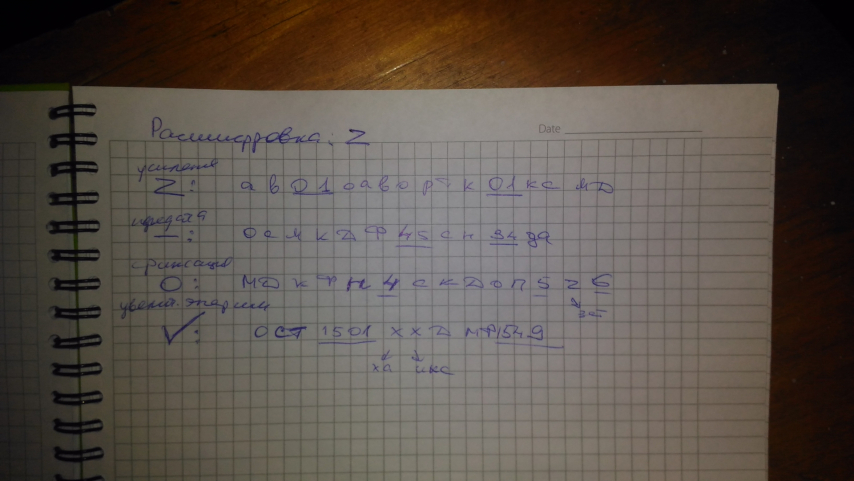 Расшифровка: Z
Date
усиление
Z: а в 0 1 о а в о р т к 01 к с м д
передача
—: о с м к д ф 45 с н 34 да
фиксация
0: м д к ф н 4 с к д о п 5 z 6
зет
увелич. энергии
✓: о с т 1501 х х д м ф 1549
ха икс